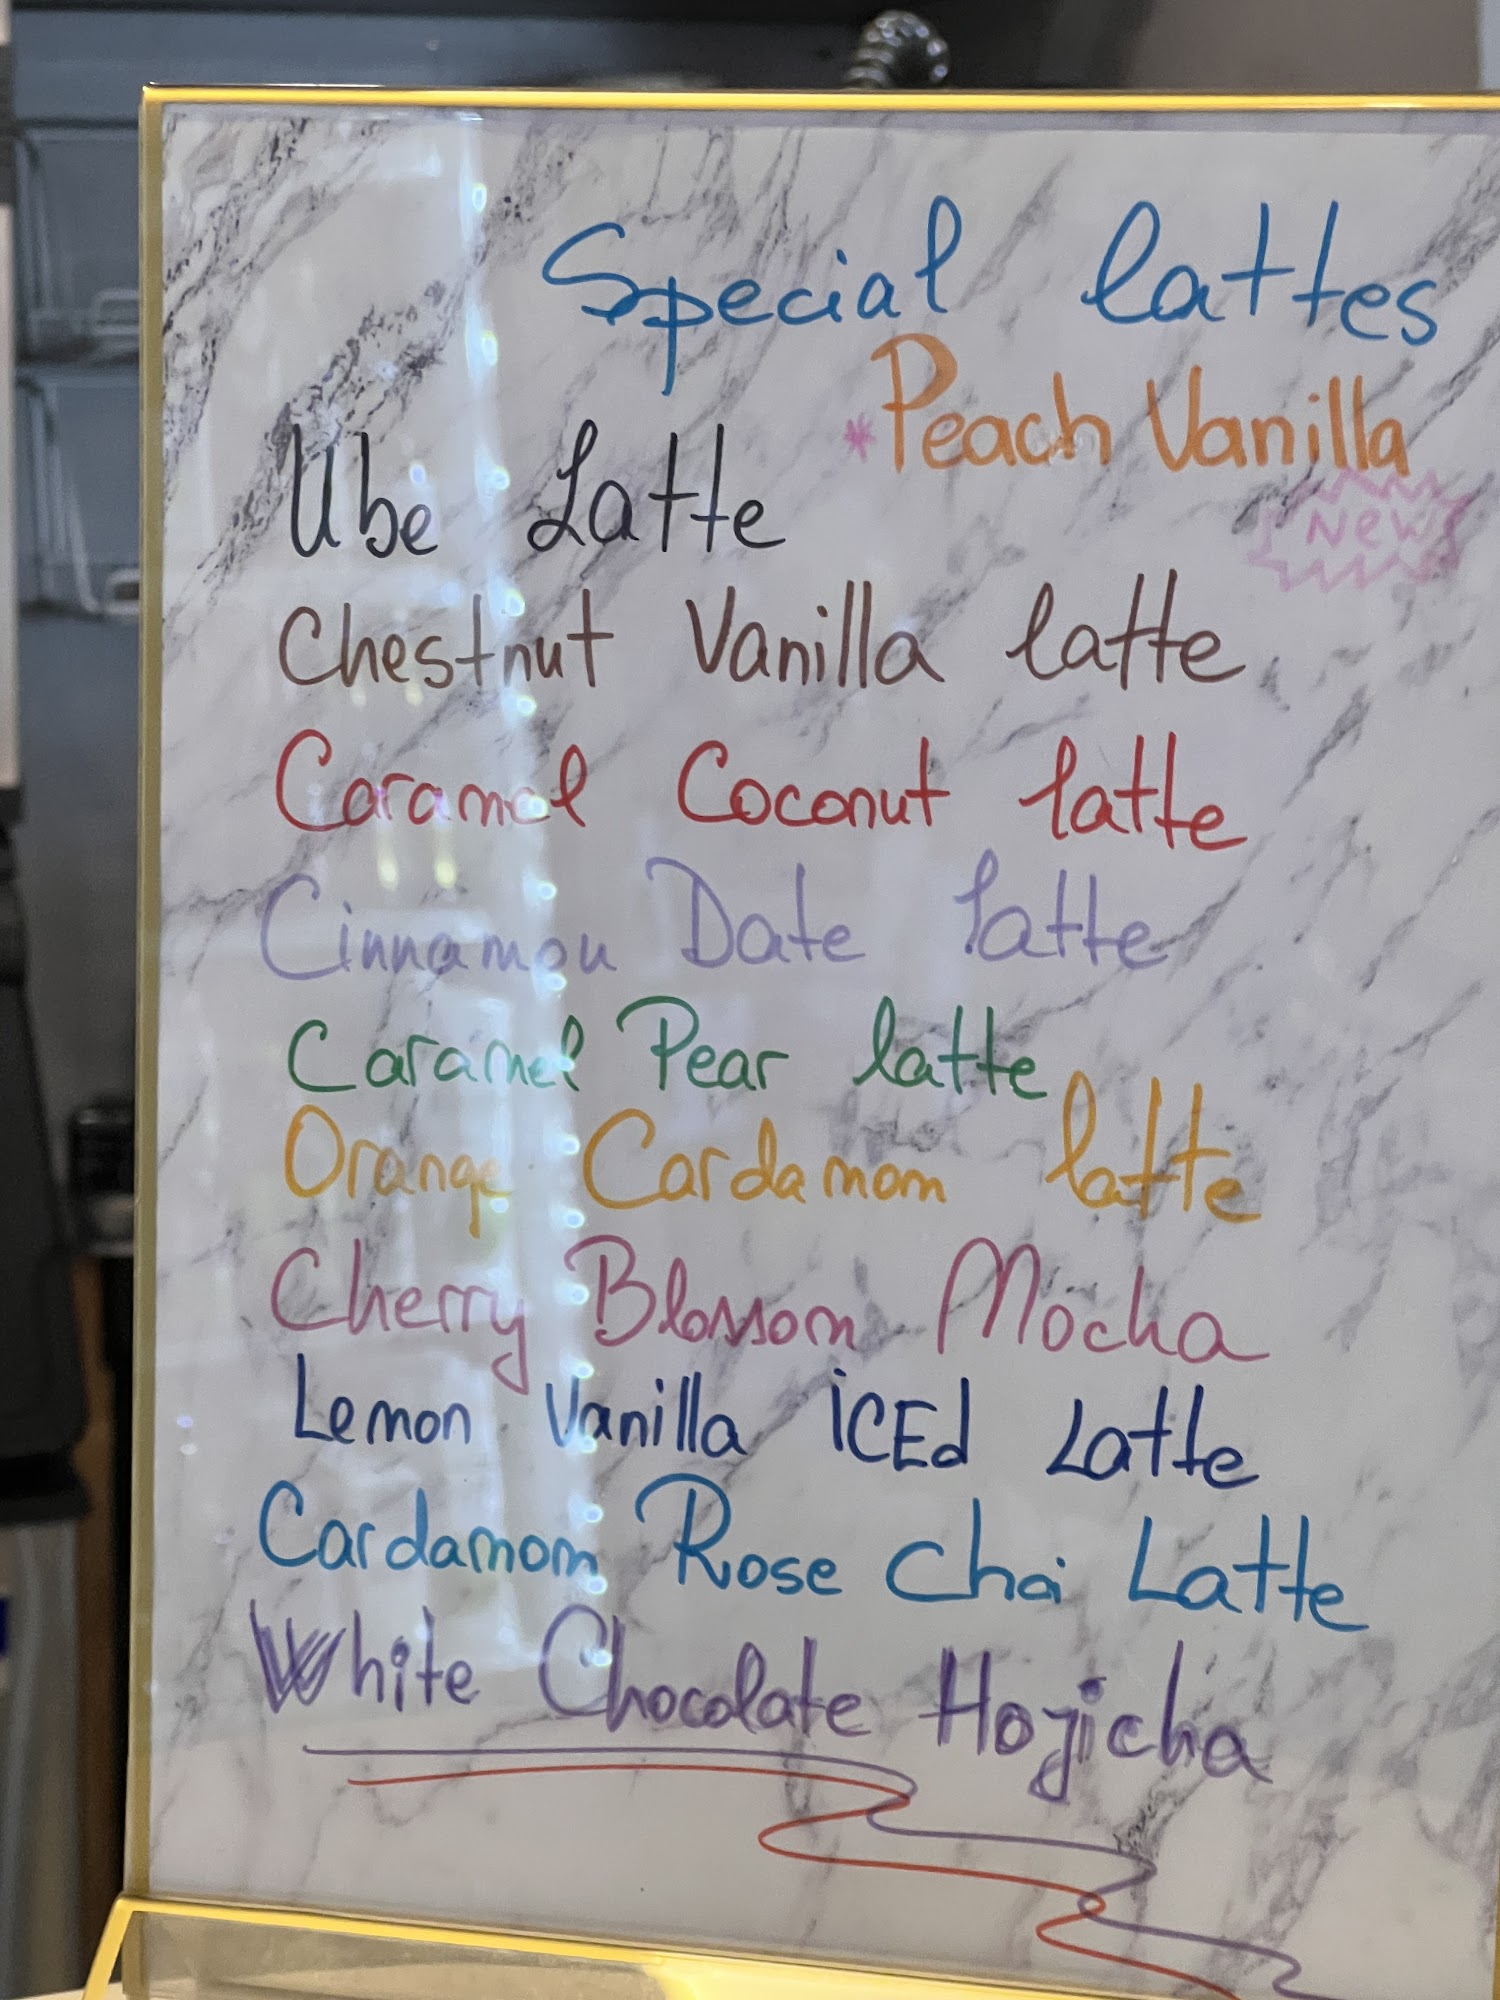 Special lattes
*Peach Vanilla
New
Ube Latte
Chestnut Vanilla latte
Caramel Coconut latte
Cinnamon Date latte
Caramel Pear latte
Orange Cardamom latte
Cherry Blossom Mocha
Lemon Vanilla iCEd Latte
Cardamom Rose Chai Latte
White Chocolate Hojicha